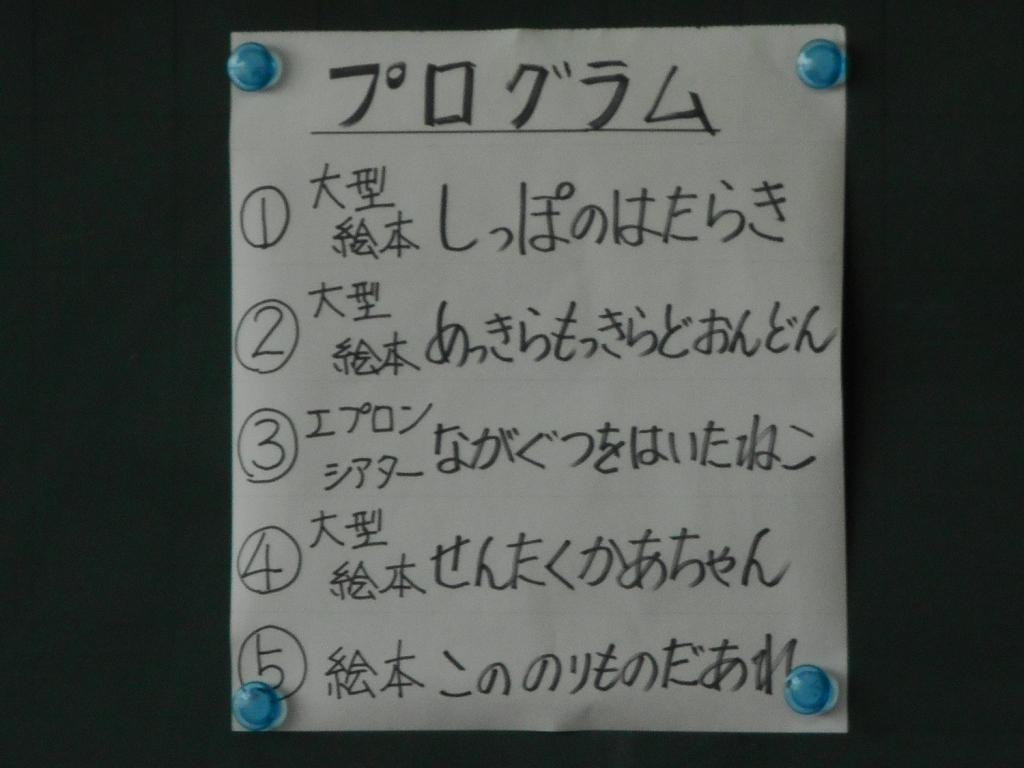 プログラム
① 大型絵本 しっぽのはたらき
② 大型絵本 めっきらもっきらどおんどん
③ エプロンシアター ながぐつをはいたねこ
④ 大型絵本 せんたくかあちゃん
⑤ 絵本 このりものだあれ